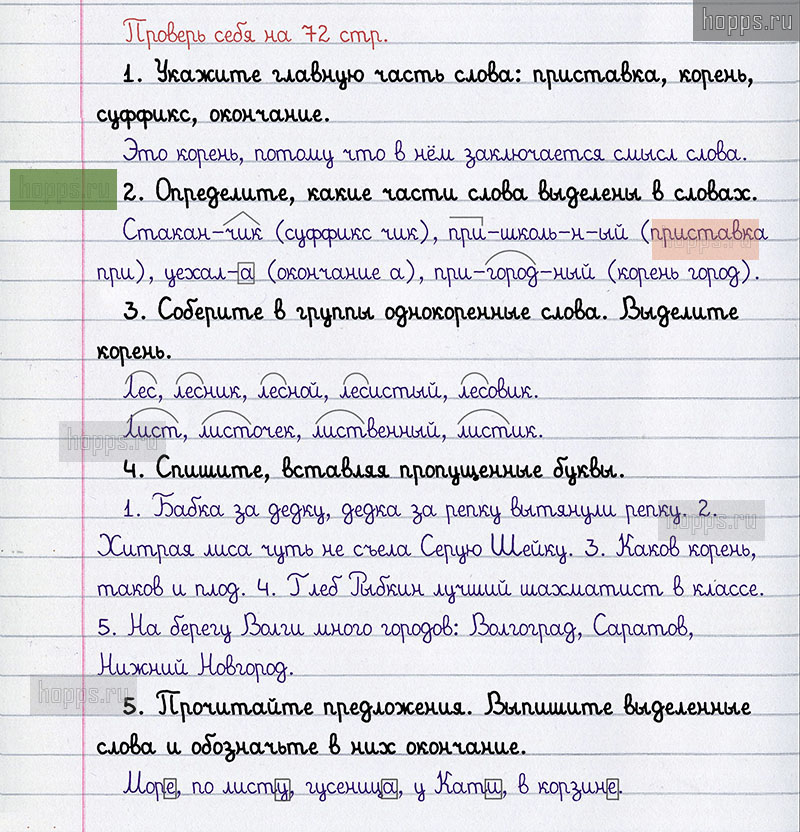 hopps.ru
Проверь себя на 72 стр.
1. Укажите главную часть слова: приставка, корень,
суффикс, окончание.
Это корень, потому что в нём заключается смысл слова.
hopps.ru
2. Определите, какие части слова выделены в словах.
Стакан-чик (суффикс чик), при-школь-н-ый (приставка
hopps.ru
при), уехал-а (окончание а), при-город-ный (корень город).
3. Соберите в группы однокоренные слова. Выделите
корень.
Лес, лесник, лесной, лесистый, лесовик.
Лист, листочек, лиственный, листик.
hopps.ru
4. Спишите, вставляя пропущенные буквы.
1. Бабка за дедку, дедка за репку вытянули репку. 2.
hopps.ru
Хитрая лиса чуть не съела Серую Шейку. 3. Каков корень,
таков и плод. 4. Глеб Рыбкин лучший шахматист в классе.
5. На берегу Волги много городов: Волгоград, Саратов,
Нижний Новгород.
hopps.ru
5. Прочитайте предложения. Выпишите выделенные
слова и обозначьте в них окончание.
Море, по листу, гусеница, у Кати, в корзине.